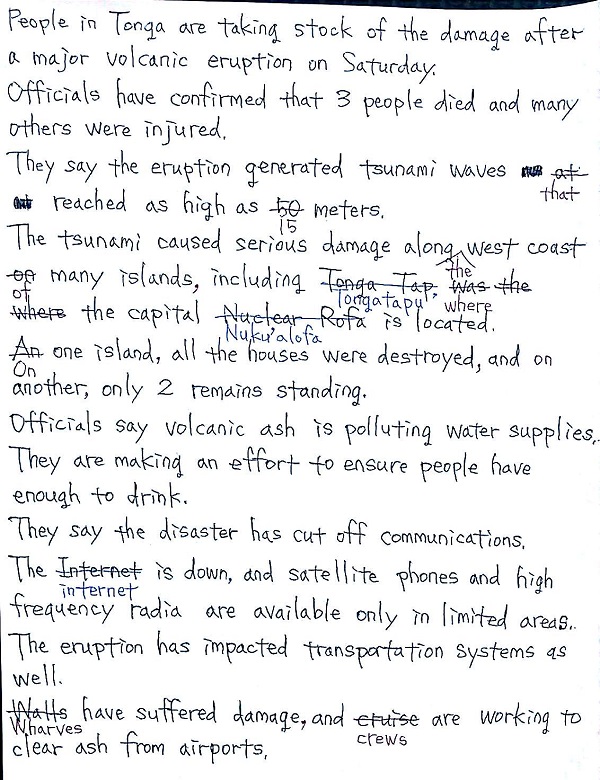 People in Tonga are taking stock of the damage after
a major volcanic eruption on Saturday.
Officials have confirmed that 3 people died and many
others were injured.
They say the eruption generated tsunami waves at
that
reached as high as 50 meters.
15
The tsunami caused serious damage along west coast
the
of many islands, including Tonga Tap was the
of Tongatapu, where
where the capital Nuclear Rofa is located.
Nuku'alofa
An one island, all the houses were destroyed, and on
On
another, only 2 remains standing.
Officials say volcanic ash is polluting water supplies.
They are making an effort to ensure people have
enough to drink.
They say the disaster has cut off communications.
The Internet is down, and satellite phones and high
internet
frequency radia are available only in limited areas.
The eruption has impacted transportation systems as
well.
Walls have suffered damage, and cruise are working to
Wharves crews
clear ash from airports.